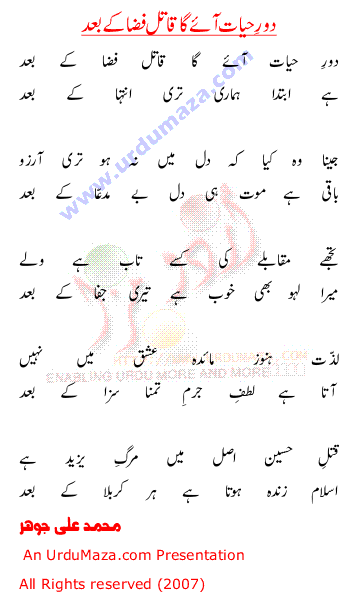 دورِ حیات آئے گا قاتل فضا کے بعد
دورِ حیات آئے گا قاتل فضا کے بعد
ہے ابتدا ہماری تری انتہا کے بعد
جینا وہ کیا کہ دل میں نہ ہو تری آرزو
باقی ہے موت ہی دل بے مدعّا کے بعد
تجھے مقابلے کی کسے تاب ہے ولے
میرا لہو بھی خوب ہے تیری جفا کے بعد
لذّت ہنوز مائدہ عشق میں نہیں
آتا ہے لطفِ جرمِ تمنا سزا کے بعد
قتلِ حسین اصل میں مرگِ یزید ہے
اسلام زندہ ہوتا ہے ہر کربلا کے بعد
محمد علی جوھر
An UrduMaza.com Presentation
All Rights reserved (2007)
www.urdumaza.com
ENABLING URDU MORE AND MORE